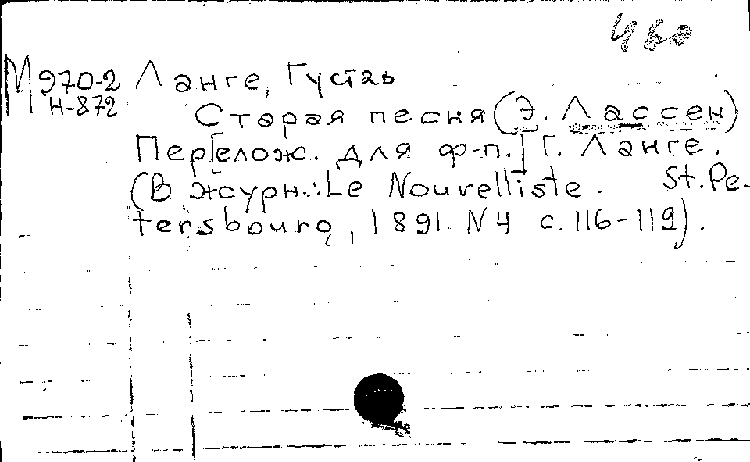 М 970-2 Ланге, Густав
Н-872
Старая песня (Э. Лассен)
Пер[елож. для ф-п.] Г. Ланге.
(В журн.: Le Nouvelliste. St. Pe-
tersbourg, 1891. N 4 с. 116-119).